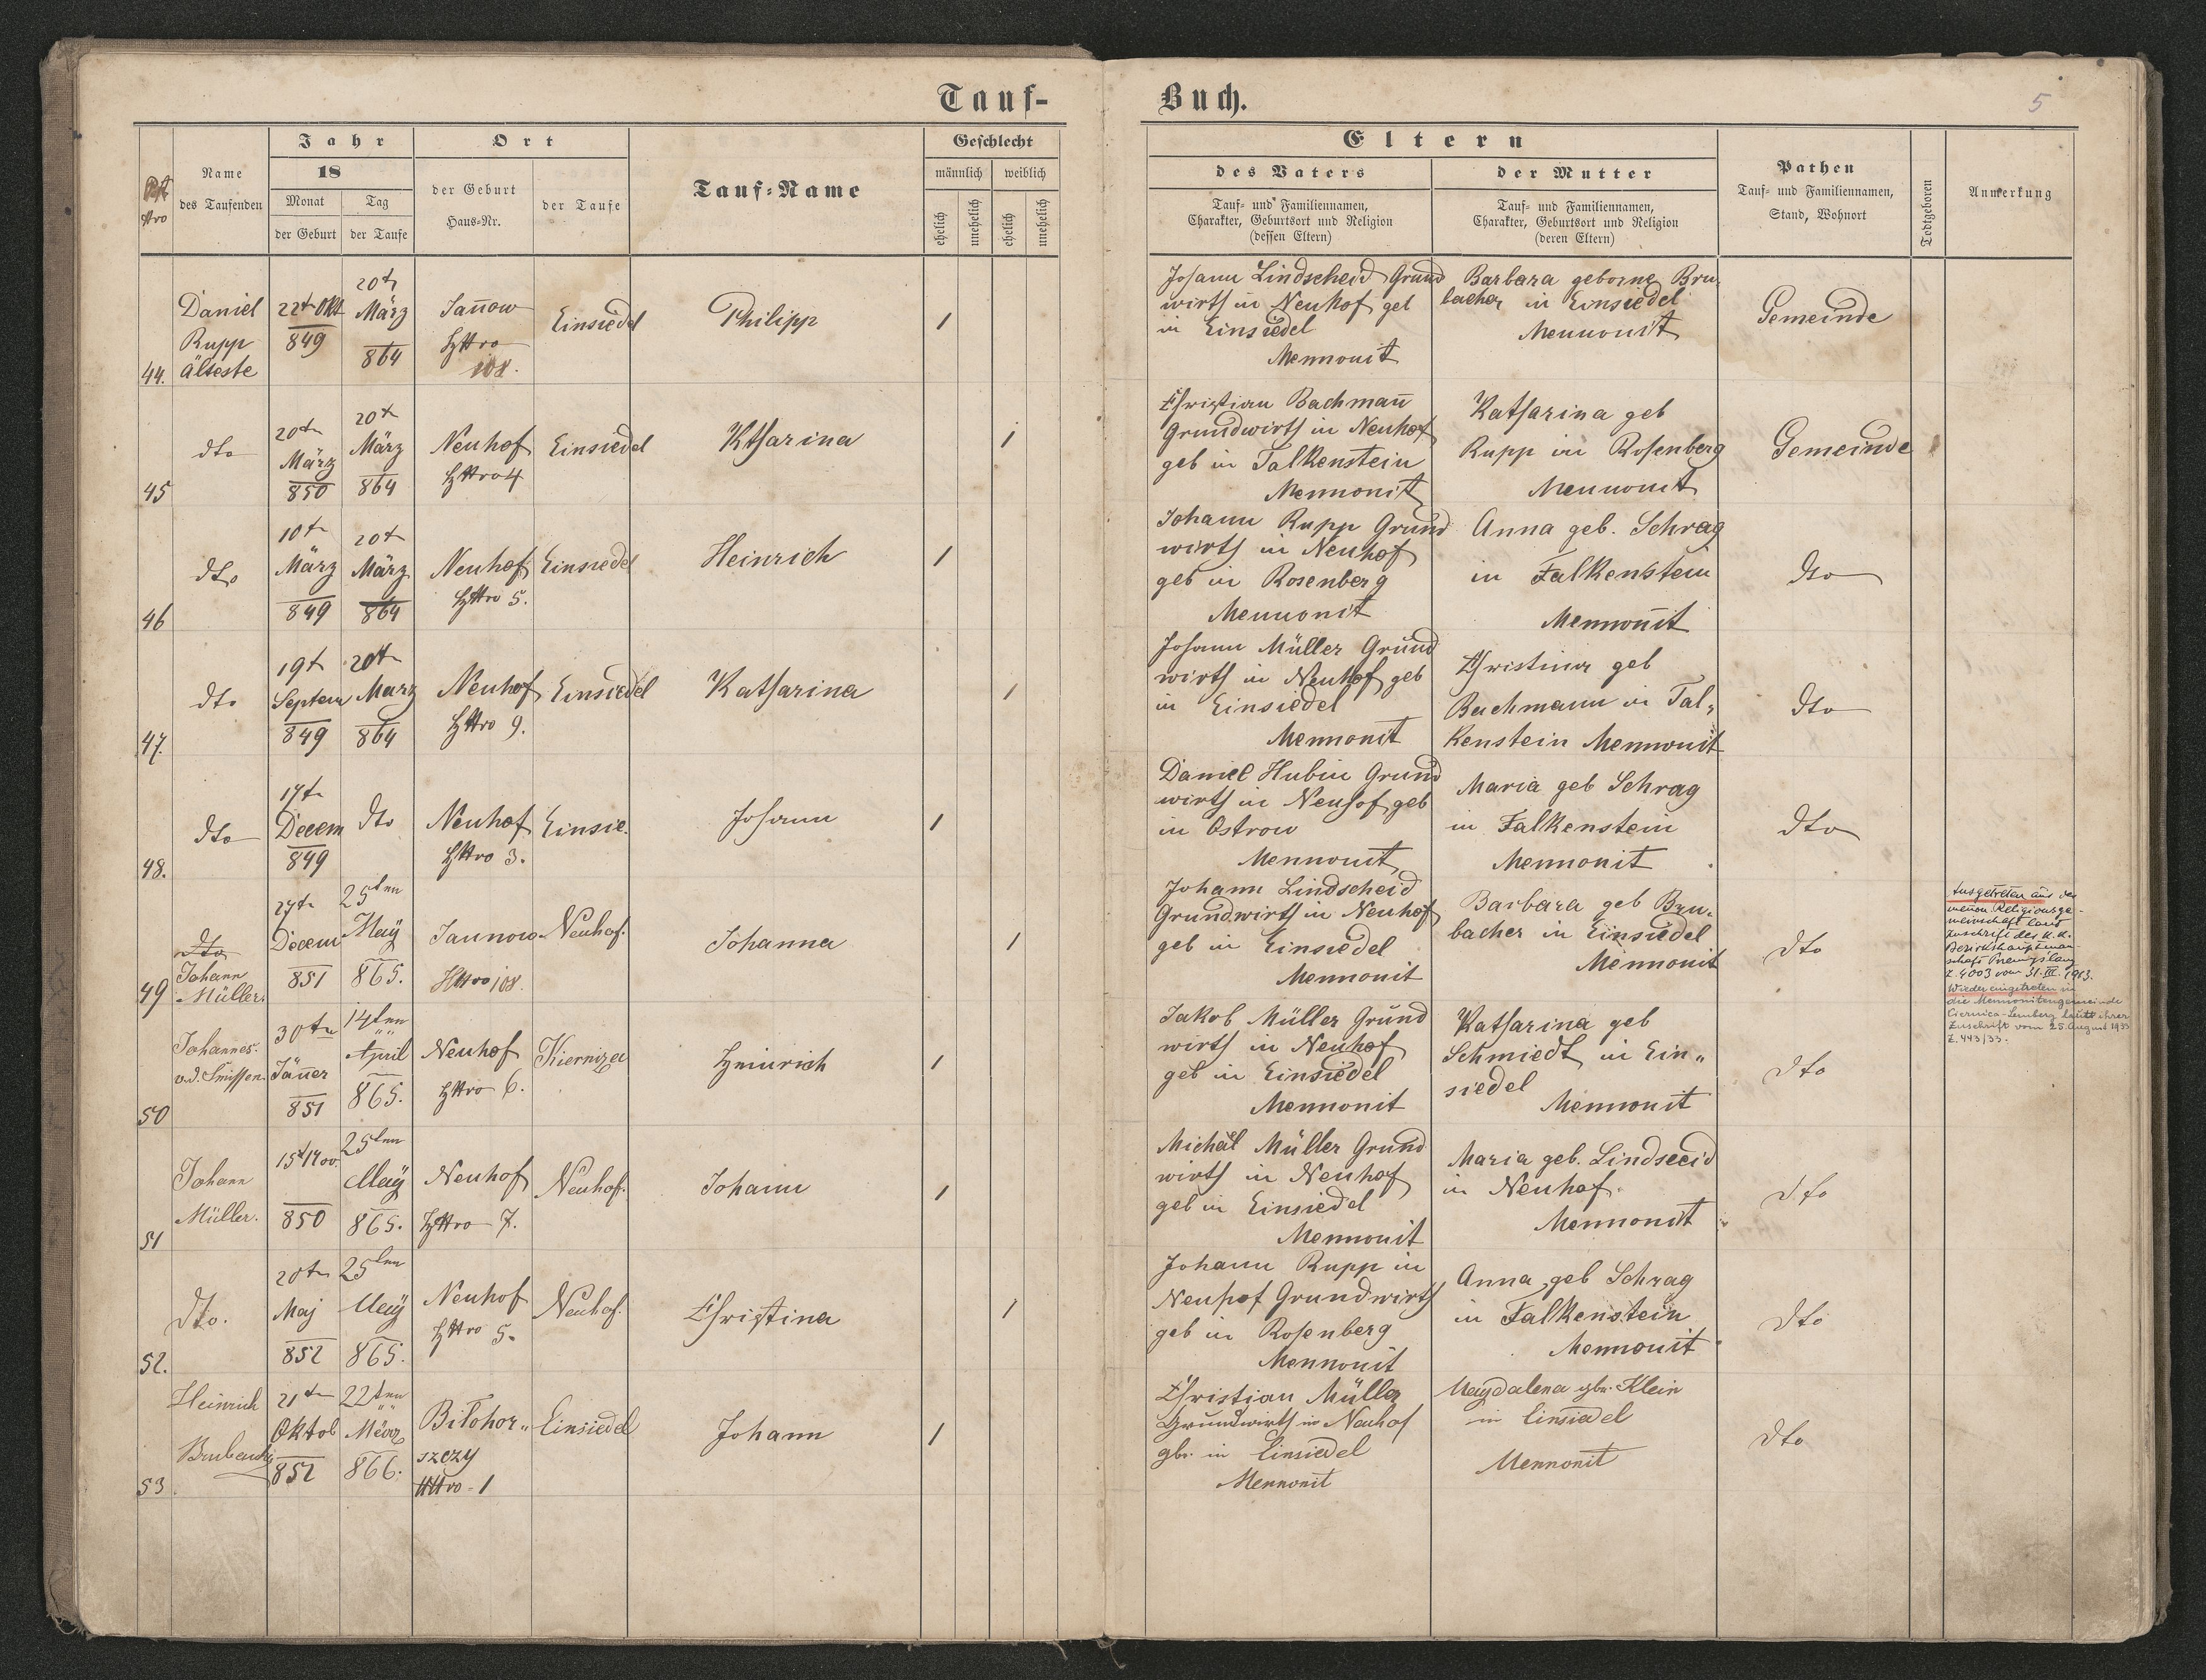 Tauf-
Buch.
5
Name
des Taufenden
Jahr
18
Monat
Tag
der Geburt
der Taufe
Ort
der Geburt
Haus-Nr.
der Taufe
Tauf-Name
Geschlecht
männlich
weiblich
ehelich
unehelich
ehelich
unehelich
Eltern
des Vaters
Tauf- und Familiennamen,
Charakter, Geburtsort und Religion
(dessen Eltern)
der Mutter
Tauf- und Familiennamen,
Charakter, Geburtsort und Religion
(deren Eltern)
Pathen
Tauf- und Familiennamen,
Stand, Wohnort
Todtgeboren
Anmerkung
44.
Daniel
Rupp
älteste
22t Okt
849
20t
März
864
Jan̄ow
HNro
108.
Einsiedel
Philipp
1
Johann Lindscheid Grund
wirth in Neuhof geb
in Einsiedel
Mennonit
Barbara geborne Bru„
bacher in Einsiedel
Mennonit
Gemeinde
45
dto
20tn
März
850
20t
März
864
Neuhof
HNro 4
Einsiedel
Ktharina
1
Christian Bachman̄
Grundwirth in Neuhof
geb in Falkenstein
Mennonit
Katharina geb
Rupp in Rosenberg
Mennonit
Gemeinde
46
dto
10tn
März
849
20t
März
864
Neuhof
HNro 5.
Einsiedel
Heinrich
1
Johann Rupp Grund
wirth in Neuhof
geb in Rosenberg
Mennonit
Anna geb. Schrag
in Falkenstein
Mennonit
dto
47.
dto
19t
Septem
849
20tn
März
864
Neuhof
HNro 9.
Einsiedel
Katharina
1
Johann Müller Grund
wirth in Neuhof geb
in Einsiedel
Mennonit
Christina geb
Bachmann in Fal„
kenstein Mennonit
dto
48.
dto
17tn
Decem
849
dto
Neuhof
HNro 3.
Einsie.
Johann
1
Daniel Hubin Grund
wirth in Neuhof geb
in Ostrow
Mennonit
Maria geb Schrag
in Falkenstein
Mennonit
dto
49
dto
Johann
Müller.
27tn
Decem
851
25ten
May
865.
Jannow
HNro 108.
Neuhof.
Johanna
1
Johann Lindscheid
Grundwirth in Neuhof
geb in Einsiedel
Mennonit
Barbara geb Bru„
bacher in Einsiedel
Mennonit
dto
Ausgetreten aus der
menon. Religionsge-
meinschaft laut
Zuschrift der k.k.
Bezirkshauptman-
schaft Przemyślany
Z. 4003 vom 31.III.1913.
Wieder eingetreten in
die Mennonitengemeinde
Kiernica-Lemberg laut ihrer
Zuschrift vom 25. August 1933
Z. 443/33.
50
Johannes
v.d. Smissen.
30tn
Jän̄er
851
14ten
April
865.
Neuhof
HNro 6.
Kierniza
Heinrich
1
Jakob Müller Grund
wirth in Neuhof
geb in Einsiedel
Mennonit
Katharina geb
Schmiedt in Ein„
siedel
Mennonit
dto
51
Johann
Müller.
850
25ten
May
865.
Neuhof
HNro 7.
Neuhof.
Johann
1
Michal Müller Grund
wirth in Neuhof
geb in Einsiedel
Mennonit
Maria geb. Lindsceid
in Neuhof.
Mennonit
dto
52.
dto.
20tn
Maj
852
25ten
May
865.
Neuhof
HNro 5.
Neuhof.
Christina
1
Johann Rupp in
Neuhof Grundwirth
geb in Rosenberg
Mennonit
Anna geb Schrag
in Falkenstein
Mennonit
dto
53
Heinrich
21tn
Oktob
852
22ten
März
866.
Bilohor„
szczy
HNro 1
Einsiedel
Johann
1
Christian Müller
Grundwirth in Neuhof
gbr. in Einsiedel
Mennonit
Magdalena gbr. Klein
in Einsiedel
Mennonit
dto